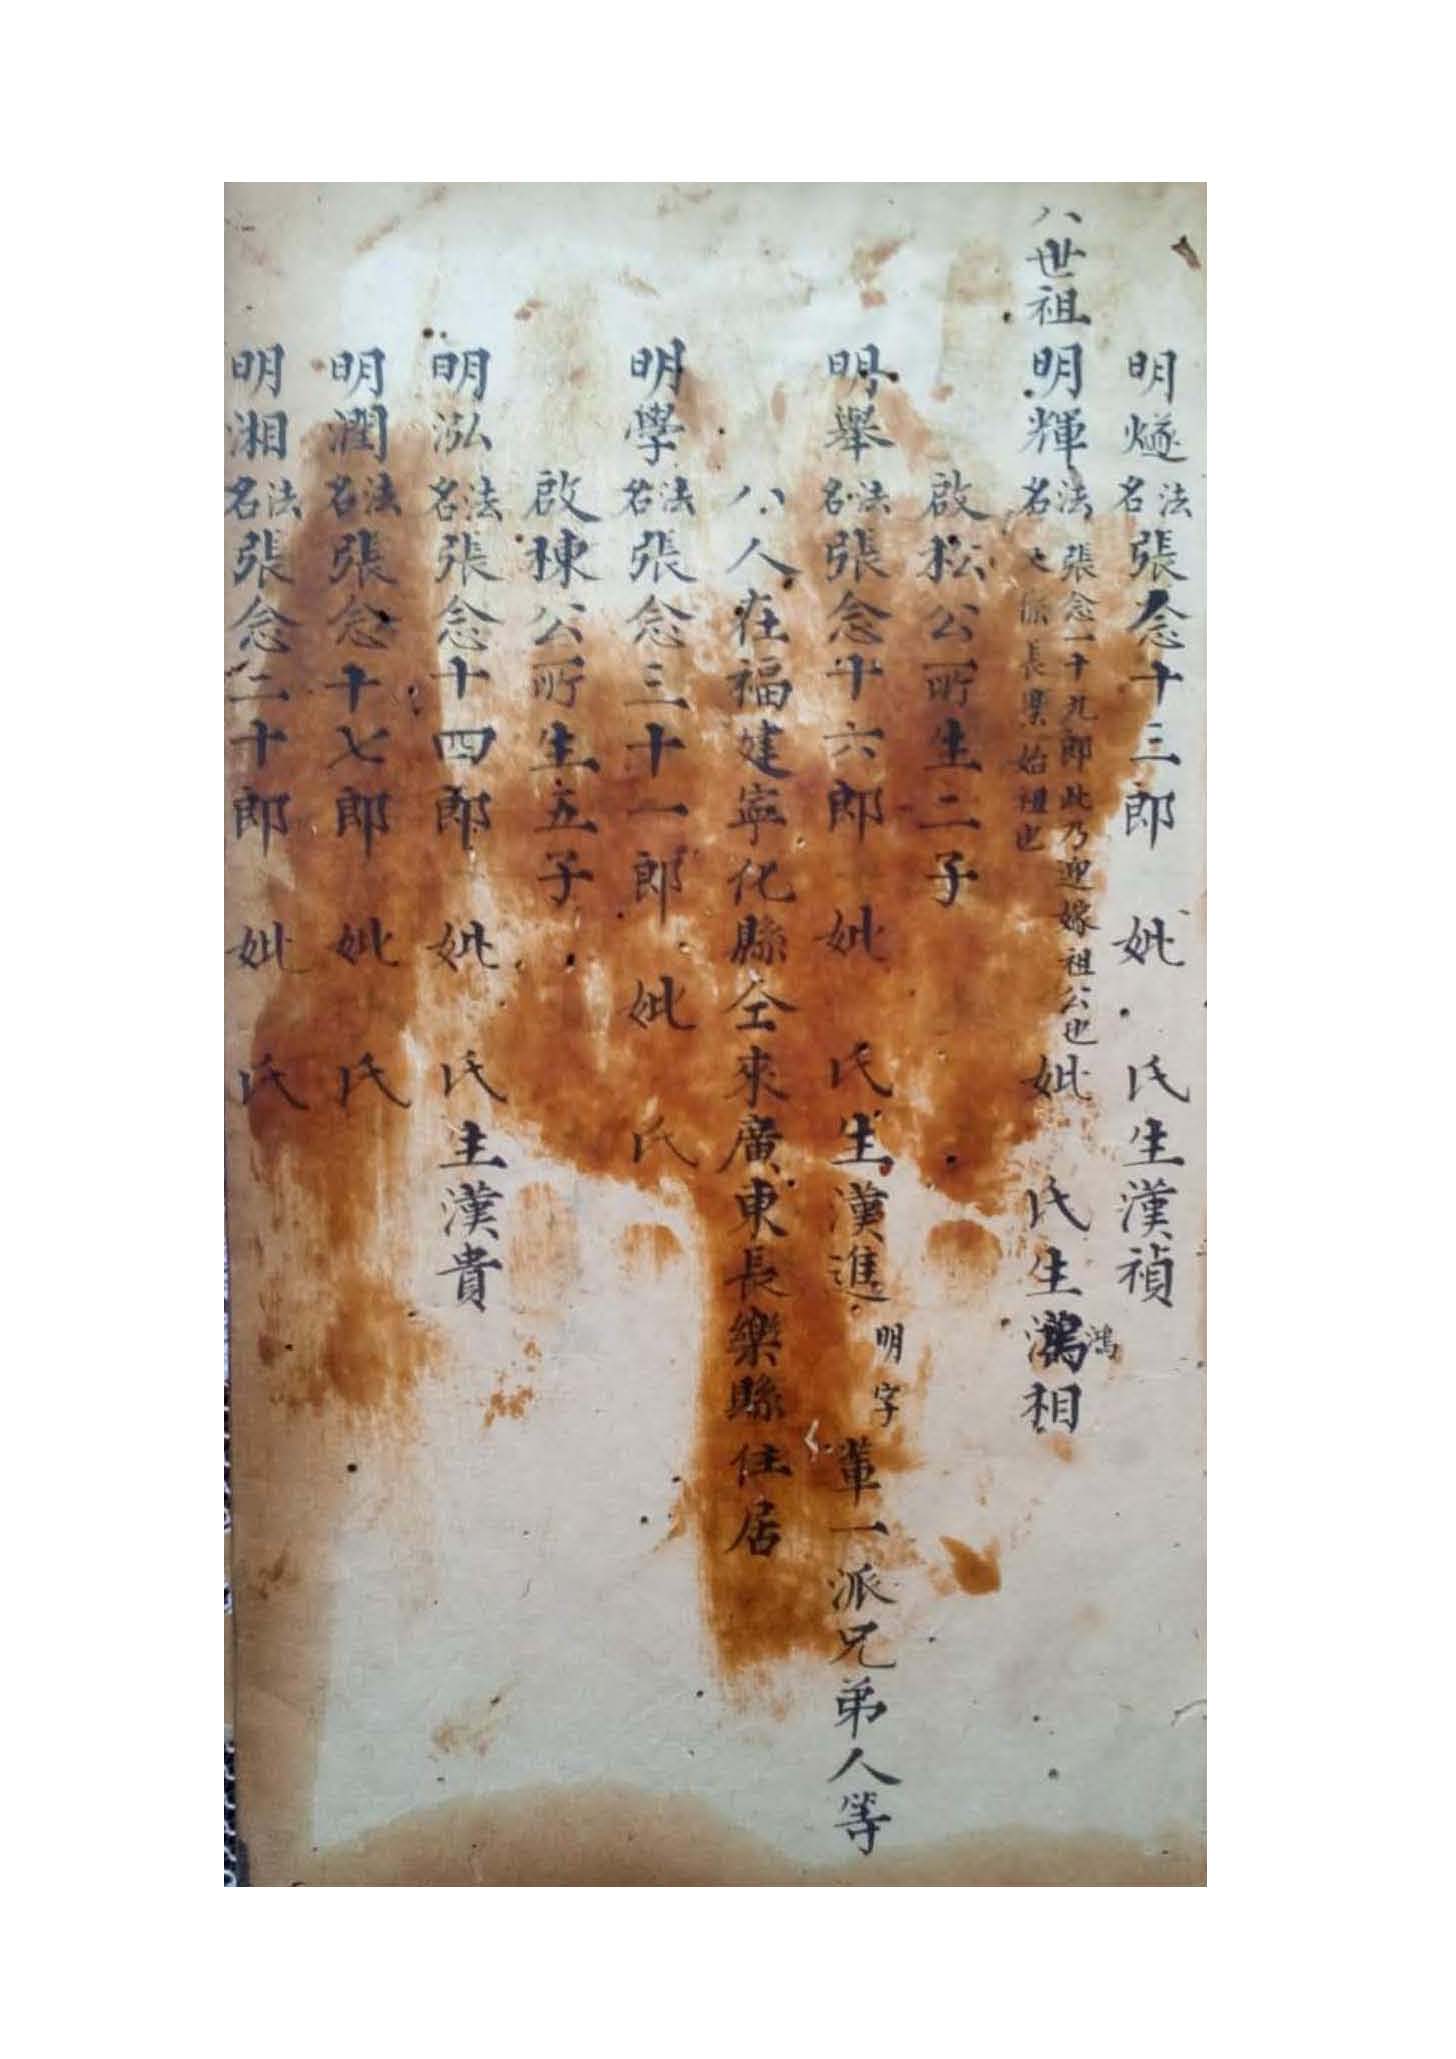 明燧法名張念十三郎 妣 氏生漢禎
八世祖 明輝法名張念一十九郎此乃迎嫁祖公也
長樂始祖也 妣 氏生鴻相
鴻
啟松公所生二子
明舉法名張念十六郎 妣 氏生漢進 明字輩一派兄弟人等
八人在福建寧化縣仝來廣東長樂縣住居
明學法名張念三十一郎 妣 氏
啟棟公所生五子
明泓法名張念十四郎 妣 氏生漢貴
明潤法名張念十七郎 妣 氏
明湘法名張念二十郎 妣 氏